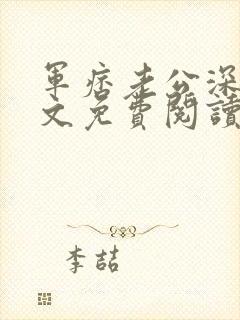 軍痞老公深
文免費閱讀
李喆